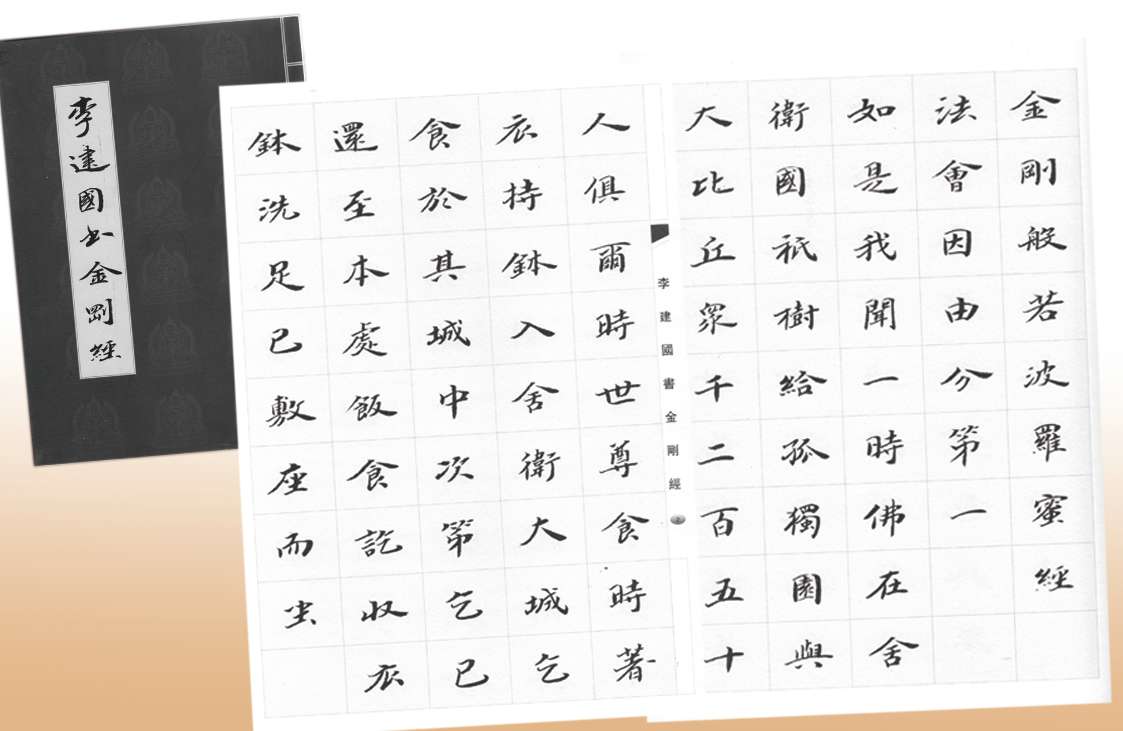 李建國书金剛經
金剛般若波羅蜜經
法會因由分第一
如是我聞一時佛在舍
衛國祇樹給孤獨園與
大比丘眾千二百五十
李建國書金剛經
人俱爾時世尊食時著
衣持鉢入舍衛大城乞
食於其城中次第乞已
還至本處飯食訖收衣
鉢洗足已敷座而坐